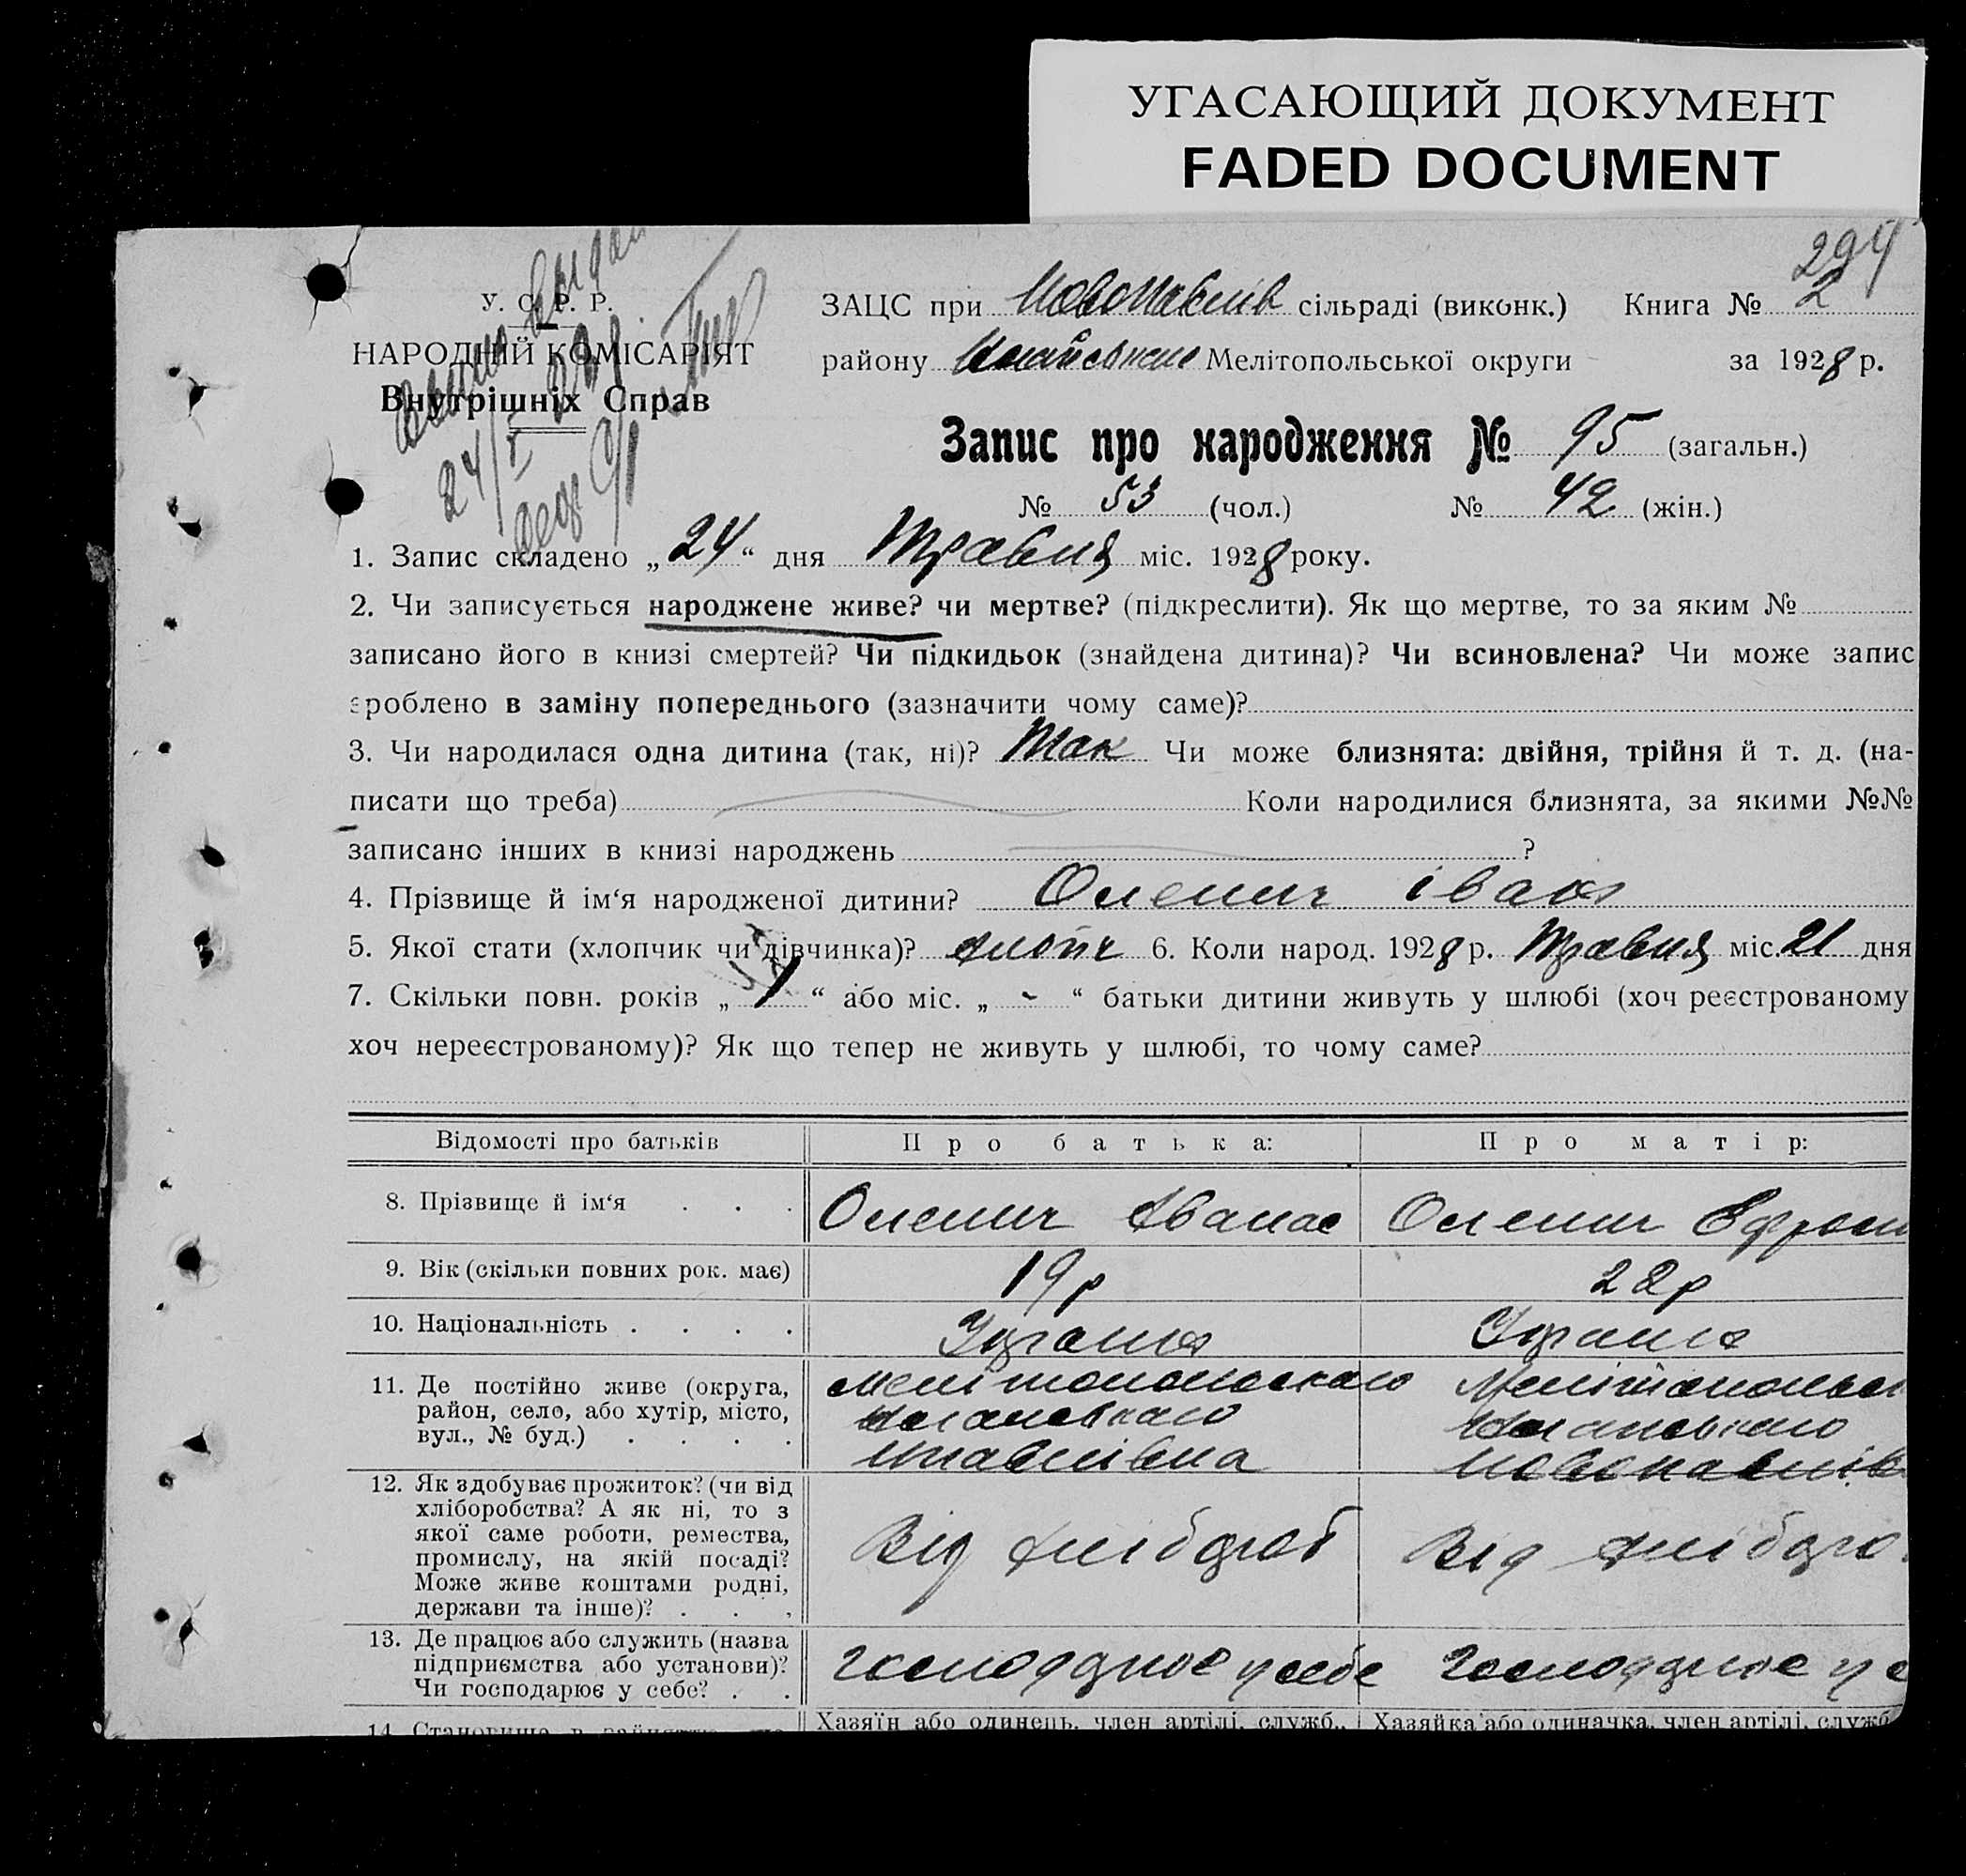 УГАСАЮЩИЙ ДОКУМЕНТ
FADED DOCUMENT
294
У. С. Р. Р.
НАРОДНІЙ КОМІСАРІЯТ
Внутрішніх Справ
24/V
ЗАЦС при Новопавлів сільраді (виконк.) Книга № 2
району Мелітопольської округи за 1928 р.
Запис про народження № 95 (загальн.)
№ 53 (чол.) № 42 (жін.)
1. Запис складено „24“ дня Травня міс. 1928 року.
2. Чи записується народжене живе? чи мертве? (підкреслити). Як що мертве, то за яким №
записано його в книзі смертей? Чи підкидьок (знайдена дитина)? Чи всиновлена? Чи може запис
зроблено в заміну попереднього (зазначити чому саме)?
3. Чи народилася одна дитина (так, ні)? Так Чи може близнята: двійня, трійня й т. д. (на-
писати що треба) Коли народилися близнята, за якими №№
записано інших в книзі народжень ?
4. Прізвище й ім‘я народженої дитини? Оленич Іван
5. Якої стати (хлопчик чи дівчинка)? хлопч 6. Коли народ. 1928 р. Травня міс. 21 дня
7. Скільки повн. років „ 1 “ або міс. „ - “ батьки дитини живуть у шлюбі (хоч реєстрованому
хоч нереєстрованому)? Як що тепер не живуть у шлюбі, то чому саме?
Відомості про батьків Про батька: Про матір:
8. Прізвище й ім‘я . . . Оленич Аванас Оленич Ефрош
9. Вік (скільки повних рок. має) 19 р 22 р
10. Національність . . . . Україн Україн
11. Де постійно живе (округа,
район, село, або хутір, місто,
вул., № буд.) . . . .
Мелітопольскаго Мелітопольск
Нпавлівка Новопавлів
12. Як здобуває прожиток? (чи від
хліборобства? А як ні, то з
якої саме роботи, ремества,
промислу, на якій посаді?
Може живе коштами родні,
держави та інше)? . . .
Від хлібороб Від хліборо
13. Де працює або служить (назва
підприємства або установи)?
Чи господарює у себе? . .
господарює у себе господарює у се
14. Становище в
Хазяїн або одинець, член артілі, служб., Хазяйка або одиначка, член артілі, служб